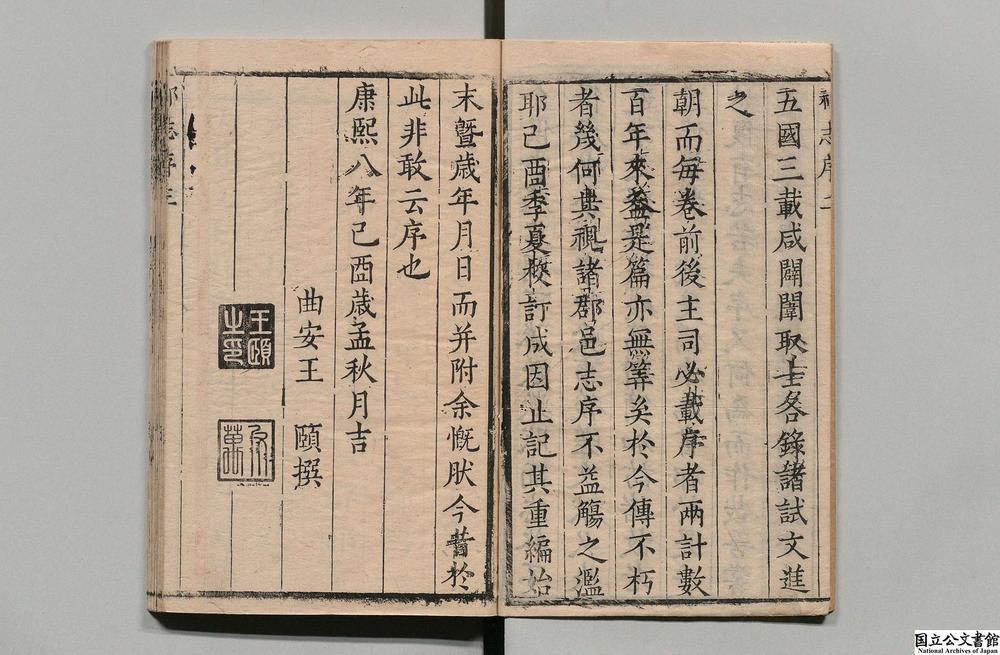 志序二
五國三載咸闢闈取士各錄諸試文進
之
朝而每卷前後主司必載序者兩計數
百年來益是篇亦無筭矣於今傳不朽
者幾何與視諸郡邑志序不益觴之濫
耶己酉季夏校訂成因止記其重編始
末曁歲年月日而并附余慨肰今昔於
此非敢云序也
康熙八年己酉歲孟秋月吉
曲安王 頤撰
王頤之印
志序三
国立公文書館
National Archives of Japan